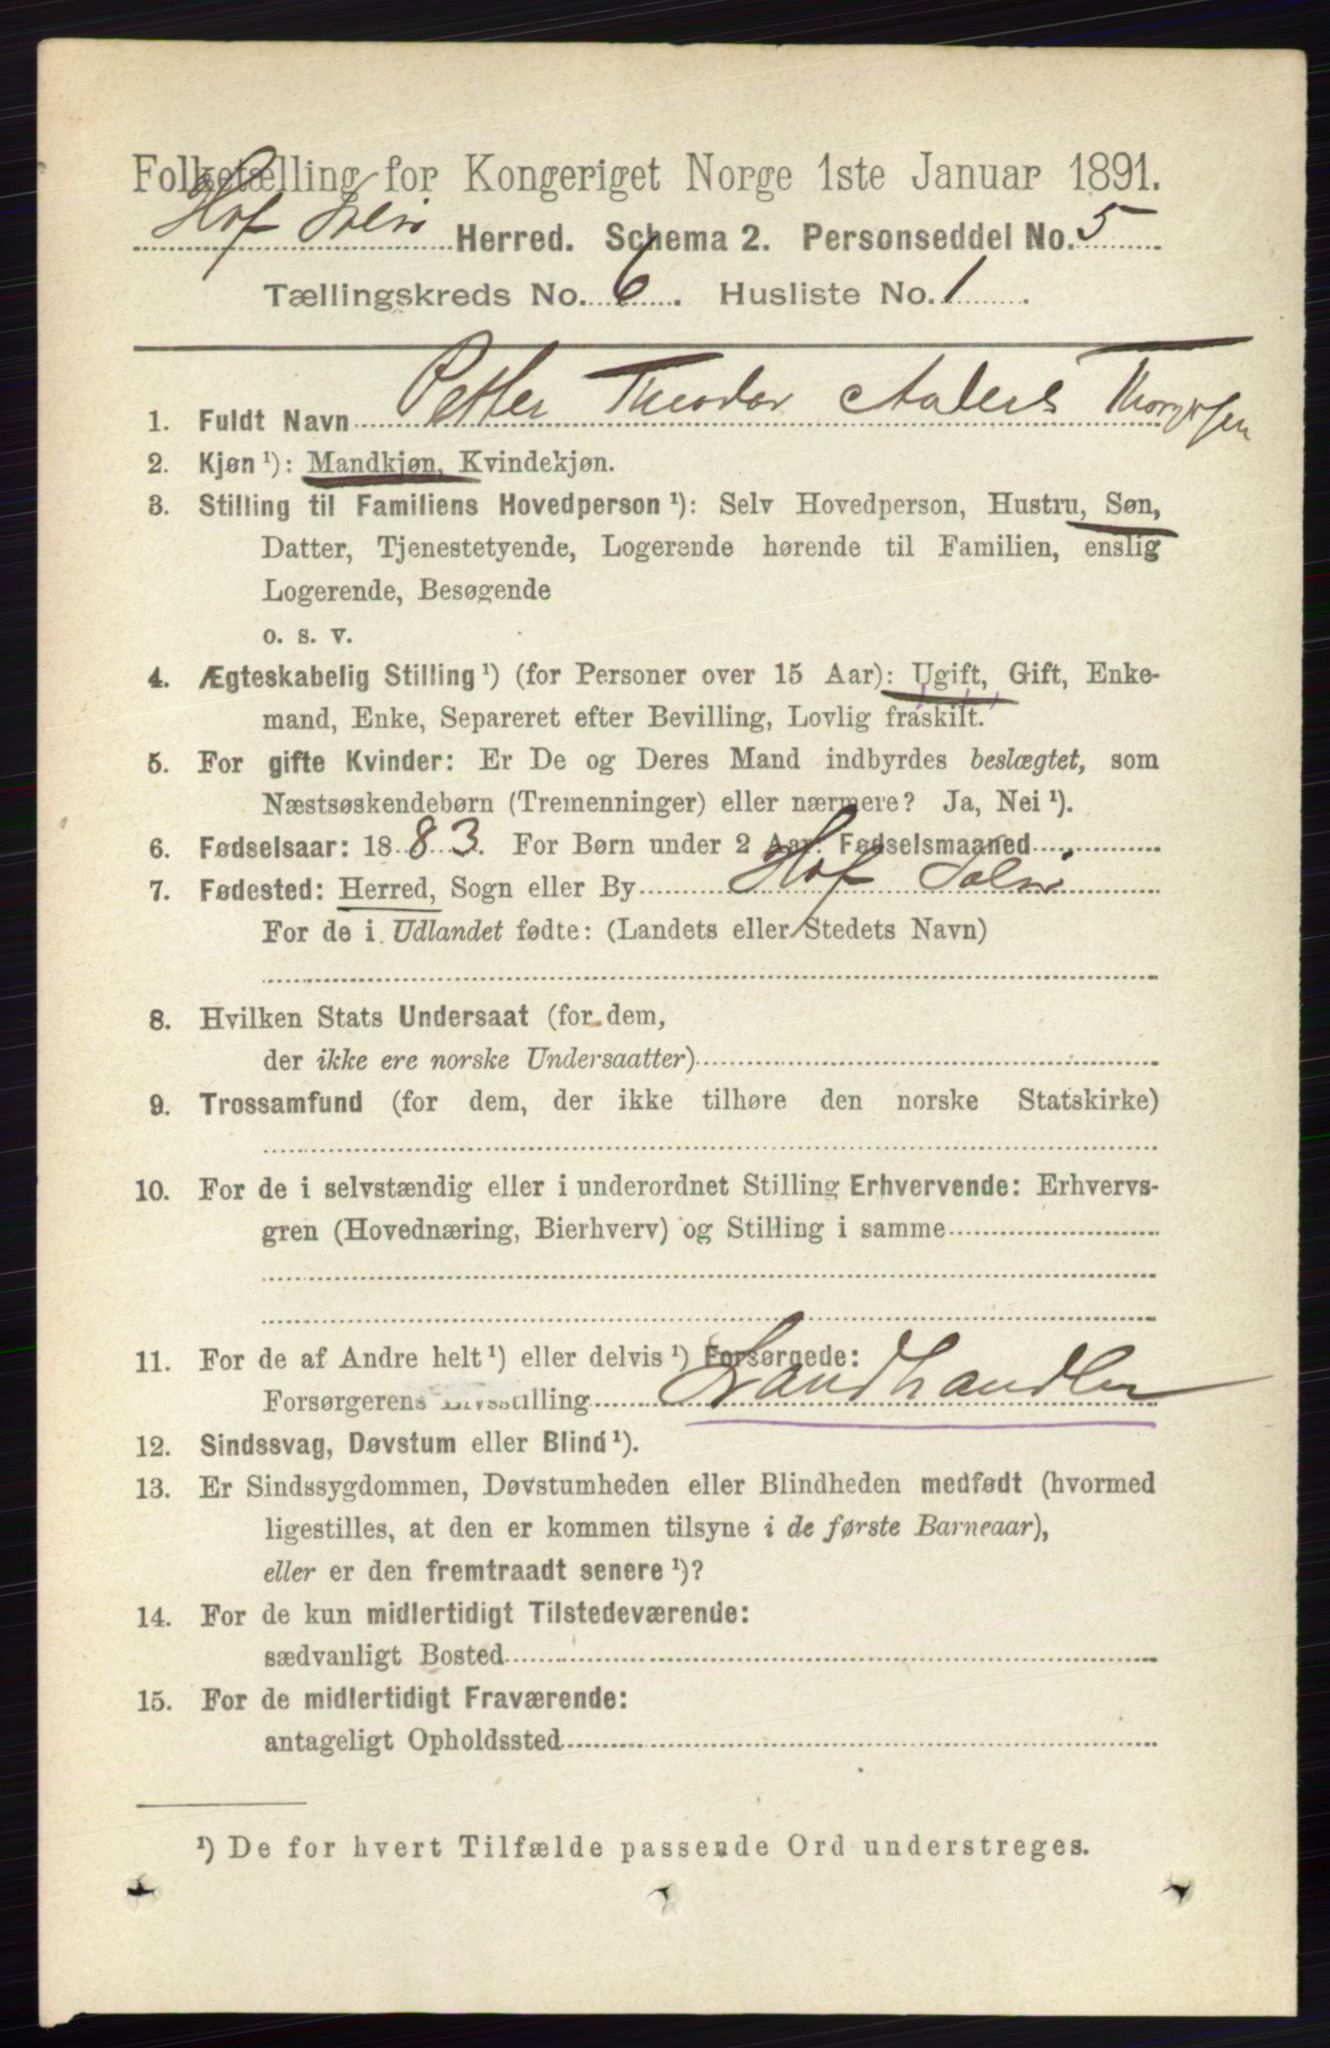 Folketælling for Kongeriget Norge 1ste Januar 1891.
Hof Herred. Schema 2. Personseddel No. 5
Tællingskreds No. 6. Husliste No. 1
1. Fuldt Navn Petter Theodor Anders
2. Kjøn ¹): Mandkjøn, Kvindekjøn.
3. Stilling til Familiens Hovedperson ¹): Selv Hovedperson, Hustru, Søn,
Datter, Tjenestetyende, Logerende hørende til Familien, enslig
Logerende, Besøgende
o. s. v.
4. Ægteskabelig Stilling ¹) (for Personer over 15 Aar): Ugift, Gift, Enke-
mand, Enke, Separeret efter Bevilling, Lovlig fraskilt.
5. For gifte Kvinder: Er De og Deres Mand indbyrdes beslægtet, som
Næstsøskendebørn (Tremenninger) eller nærmere? Ja, Nei ¹).
6. Fødselsaar: 1883. For Børn under 2 Aar: Fødselsmaaned
7. Fødested: Herred, Sogn eller By Hof
For de i Udlandet fødte: (Landets eller Stedets Navn)
8. Hvilken Stats Undersaat (for dem,
der ikke ere norske Undersaatter)
9. Trossamfund (for dem, der ikke tilhøre den norske Statskirke)
10. For de i selvstændig eller i underordnet Stilling Erhvervende: Erhvervs-
gren (Hovednæring, Bierhverv) og Stilling i samme
11. For de af Andre helt ¹) eller delvis ¹) Forsørgede:
Forsørgerens Livsstilling Landhandler
12. Sindssvag, Døvstum eller Blind ¹).
13. Er Sindssygdommen, Døvstumheden eller Blindheden medfødt (hvormed
ligestilles, at den er kommen tilsyne i de første Barneaar),
eller er den fremtraadt senere ¹)?
14. For de kun midlertidigt Tilstedeværende:
sædvanligt Bosted
15. For de midlertidigt Fraværende:
antageligt Opholdssted
¹) De for hvert Tilfælde passende Ord understreges.